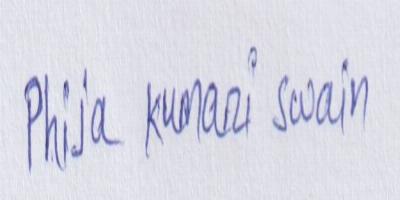 Phija kumari swain